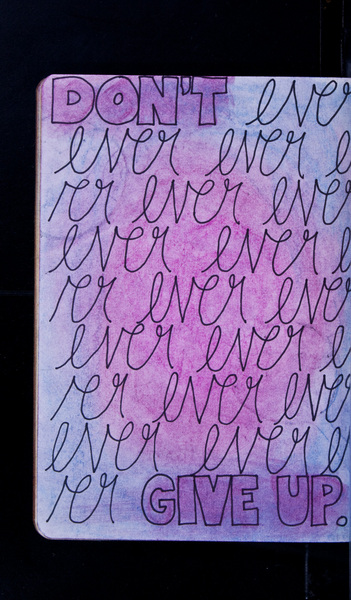 DON'T ever
ever ever e
er ever eve
ever ever e
er ever eve
ever ever e
er ever eve
ever ever e
er GIVE UP.